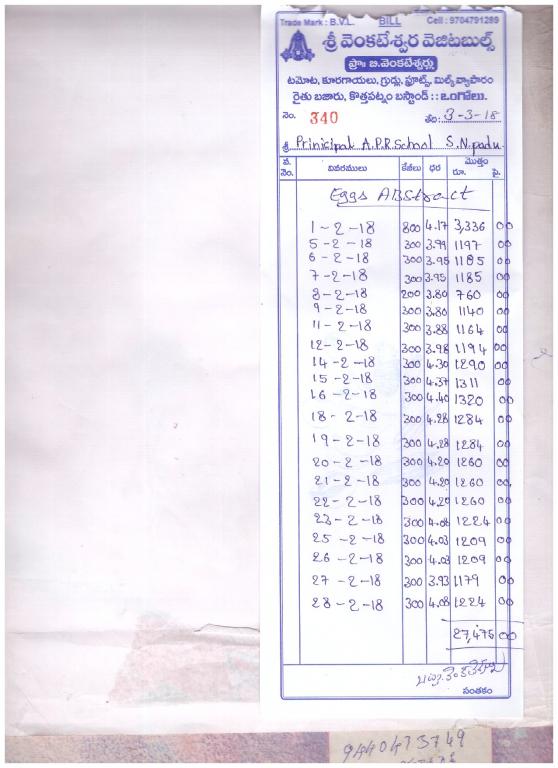 Trade Mark : B.V.L. BILL Cell : 9704791289
శ్రీ వెంకటేశ్వర వెజిటబుల్స్
ప్రొః బి.వెంకటేశ్వర్లు
టమోట, కూరగాయలు, గ్రుడ్లు, ఫ్రూట్స్, మిల్క్ వ్యాపారం
రైతు బజారు, కొత్తపట్నం బస్టాండ్ :: ఒంగోలు.
నెం. 340 తేది: 3-3-18
శ్రీ Prinicipal A.P.R.School S.N.padu.
వ.నెం. వివరములు కేజీలు ధర మొత్తం రూ. పై.
Eggs ABStract
1-2-18 800 4.17 3,336 00
5-2-18 300 3.99 1197 00
6-2-18 300 3.95 1185 00
7-2-18 300 3.95 1185 00
8-2-18 200 3.80 760 00
9-2-18 300 3.80 1140 00
11-2-18 300 3.88 1164 00
12-2-18 300 3.98 1194 00
14-2-18 300 4.30 1290 00
15-2-18 300 4.37 1311 00
16-2-18 300 4.40 1320 00
18-2-18 300 4.28 1284 00
19-2-18 300 4.28 1284 00
20-2-18 300 4.20 1260 00
21-2-18 300 4.20 1260 00
22-2-18 300 4.20 1260 00
23-2-18 300 4.08 1224 00
25-2-18 300 4.03 1209 00
26-2-18 300 4.03 1209 00
27-2-18 300 3.93 1179 00
28-2-18 300 4.08 1224 00
27,475 00
సంతకం
9440473749